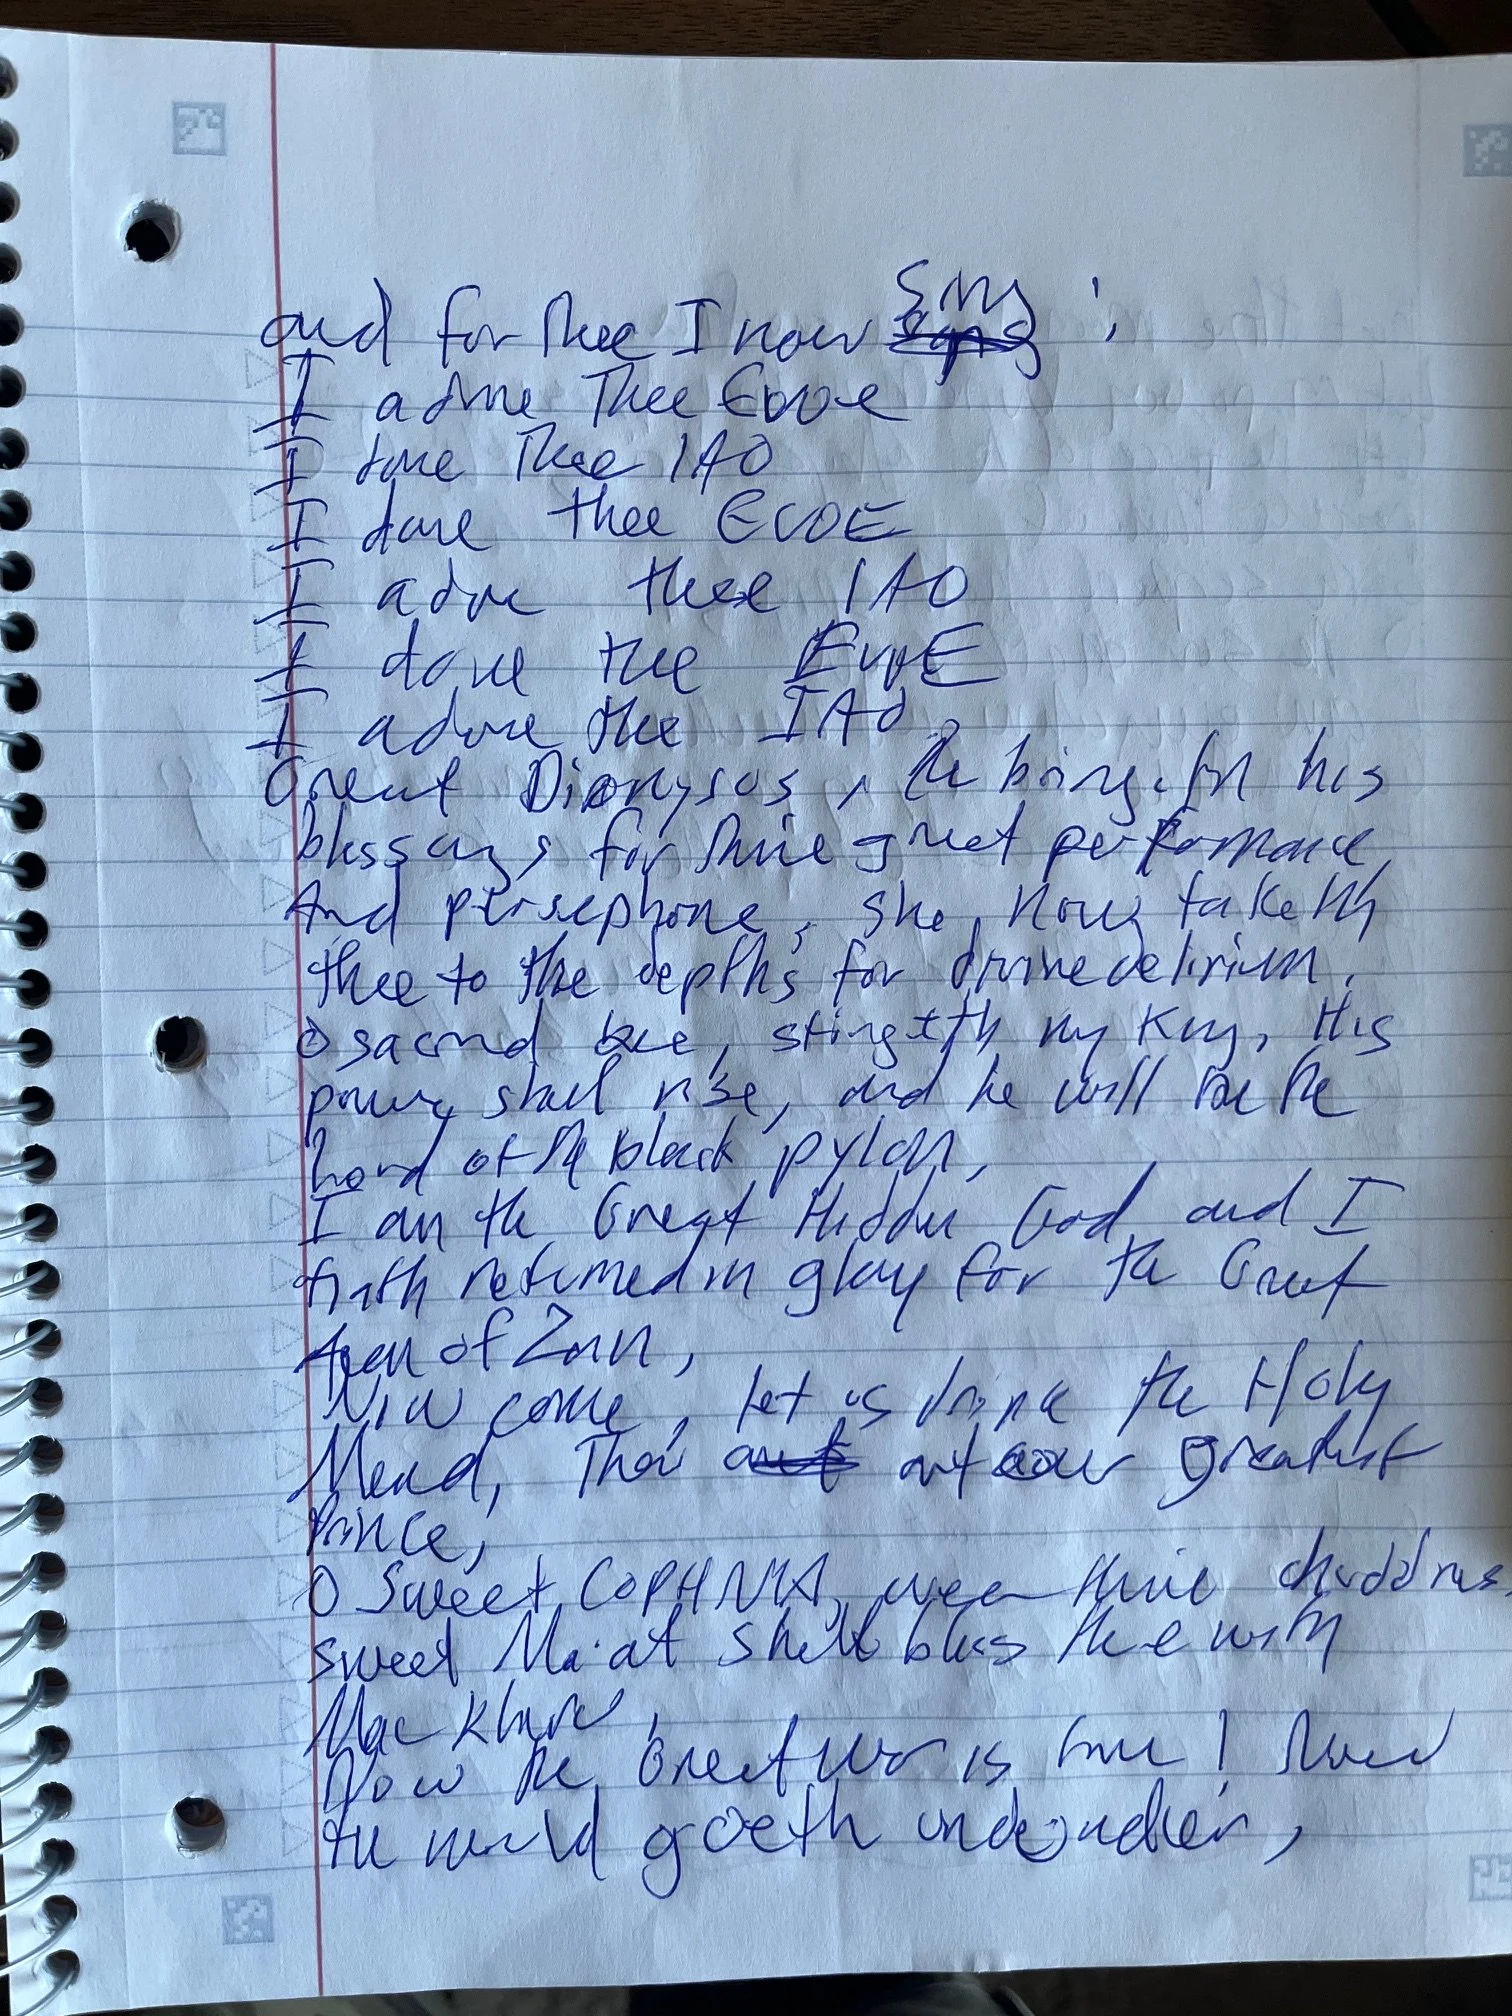 and for Thee I now sing ;
I adore Thee Evoe
I dore Thee IAO
I dore thee EVOE
I adore thee IAO
I dore the EVOE
I adore the IAO
Great Dionysos, He bring his
blessings for thine great performance,
And persephone, she now taketh
thee to the depths for divine delirium,
O sacred bee, stingeth my King, His
power shall rise, and he will be the
of the black pylon,
I am the Great Hidden God and I
hath returned in glory for the Great
Aeon of Zain,
Now come, let us drink the Holy
Mead, Thou art our greatest
Prince,
O Sweet COPHNIA, thine
sweet Ma'at shall bless thee with
Now the Great is !
the world goeth under,